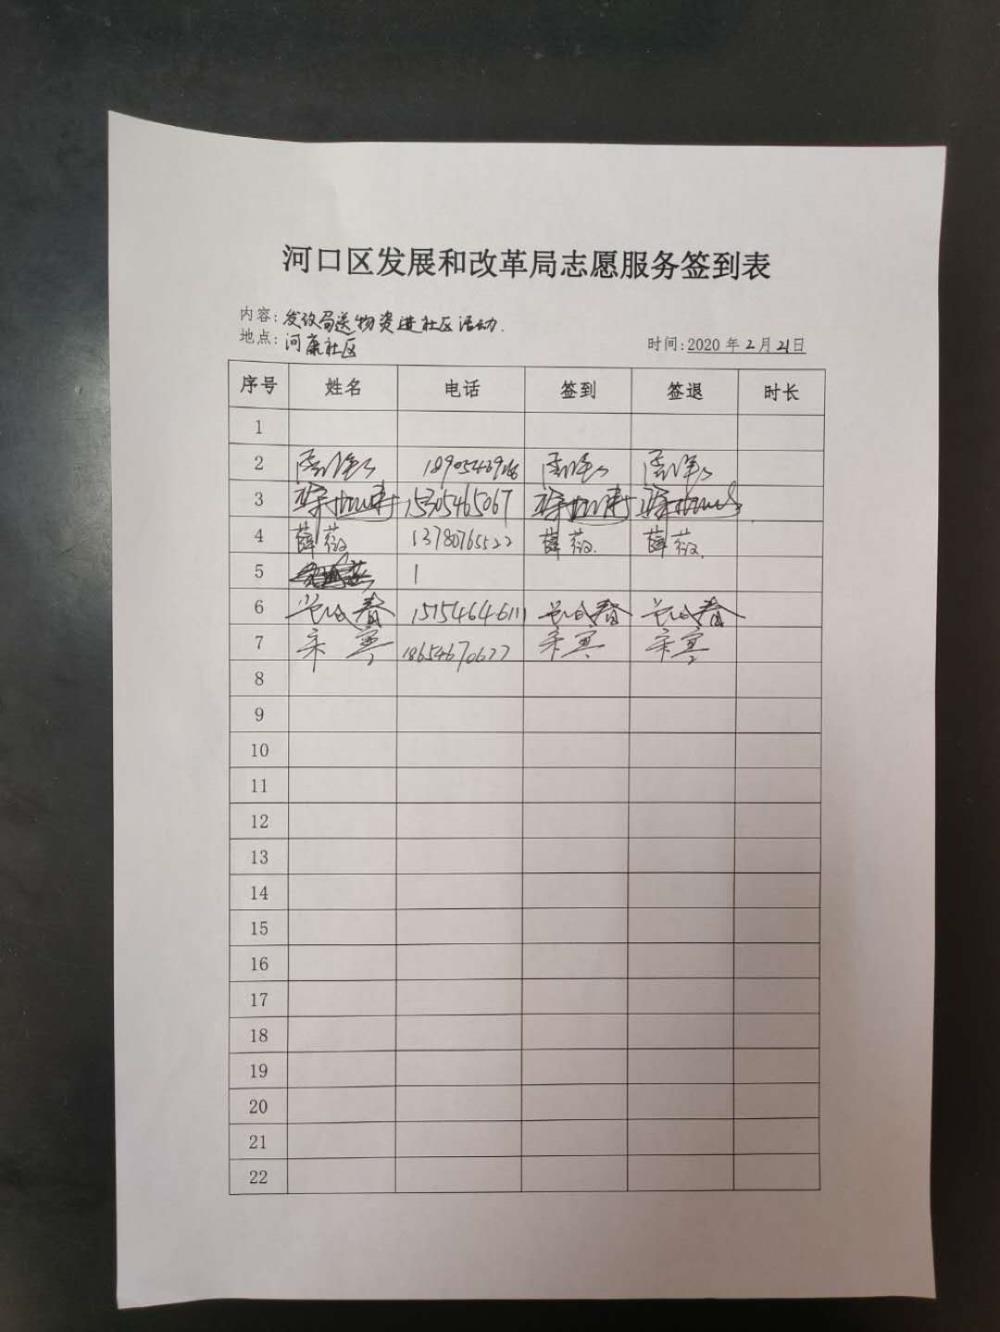 河口区发展和改革局志愿服务签到表
内容：发改局送物资进社区活动.
地点：河康社区
时间:2020 年 2 月 21日
序号 姓名 电话 签到 签退 时长
1
2
3 15305465067
4 薛薇 13780765522 薛薇. 薛薇.
5 1
6 15154646111
7 18654670627
8
9
10
11
12
13
14
15
16
17
18
19
20
21
22